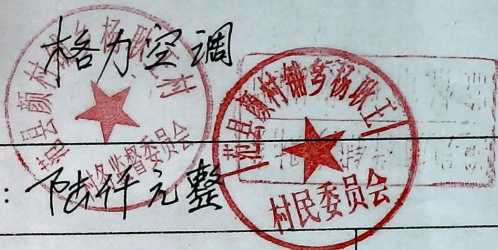 格力空调
范县颜村铺乡杨耿王村
村务监督委员会
范县颜村铺乡杨耿王
村民委员会
：陆仟元整